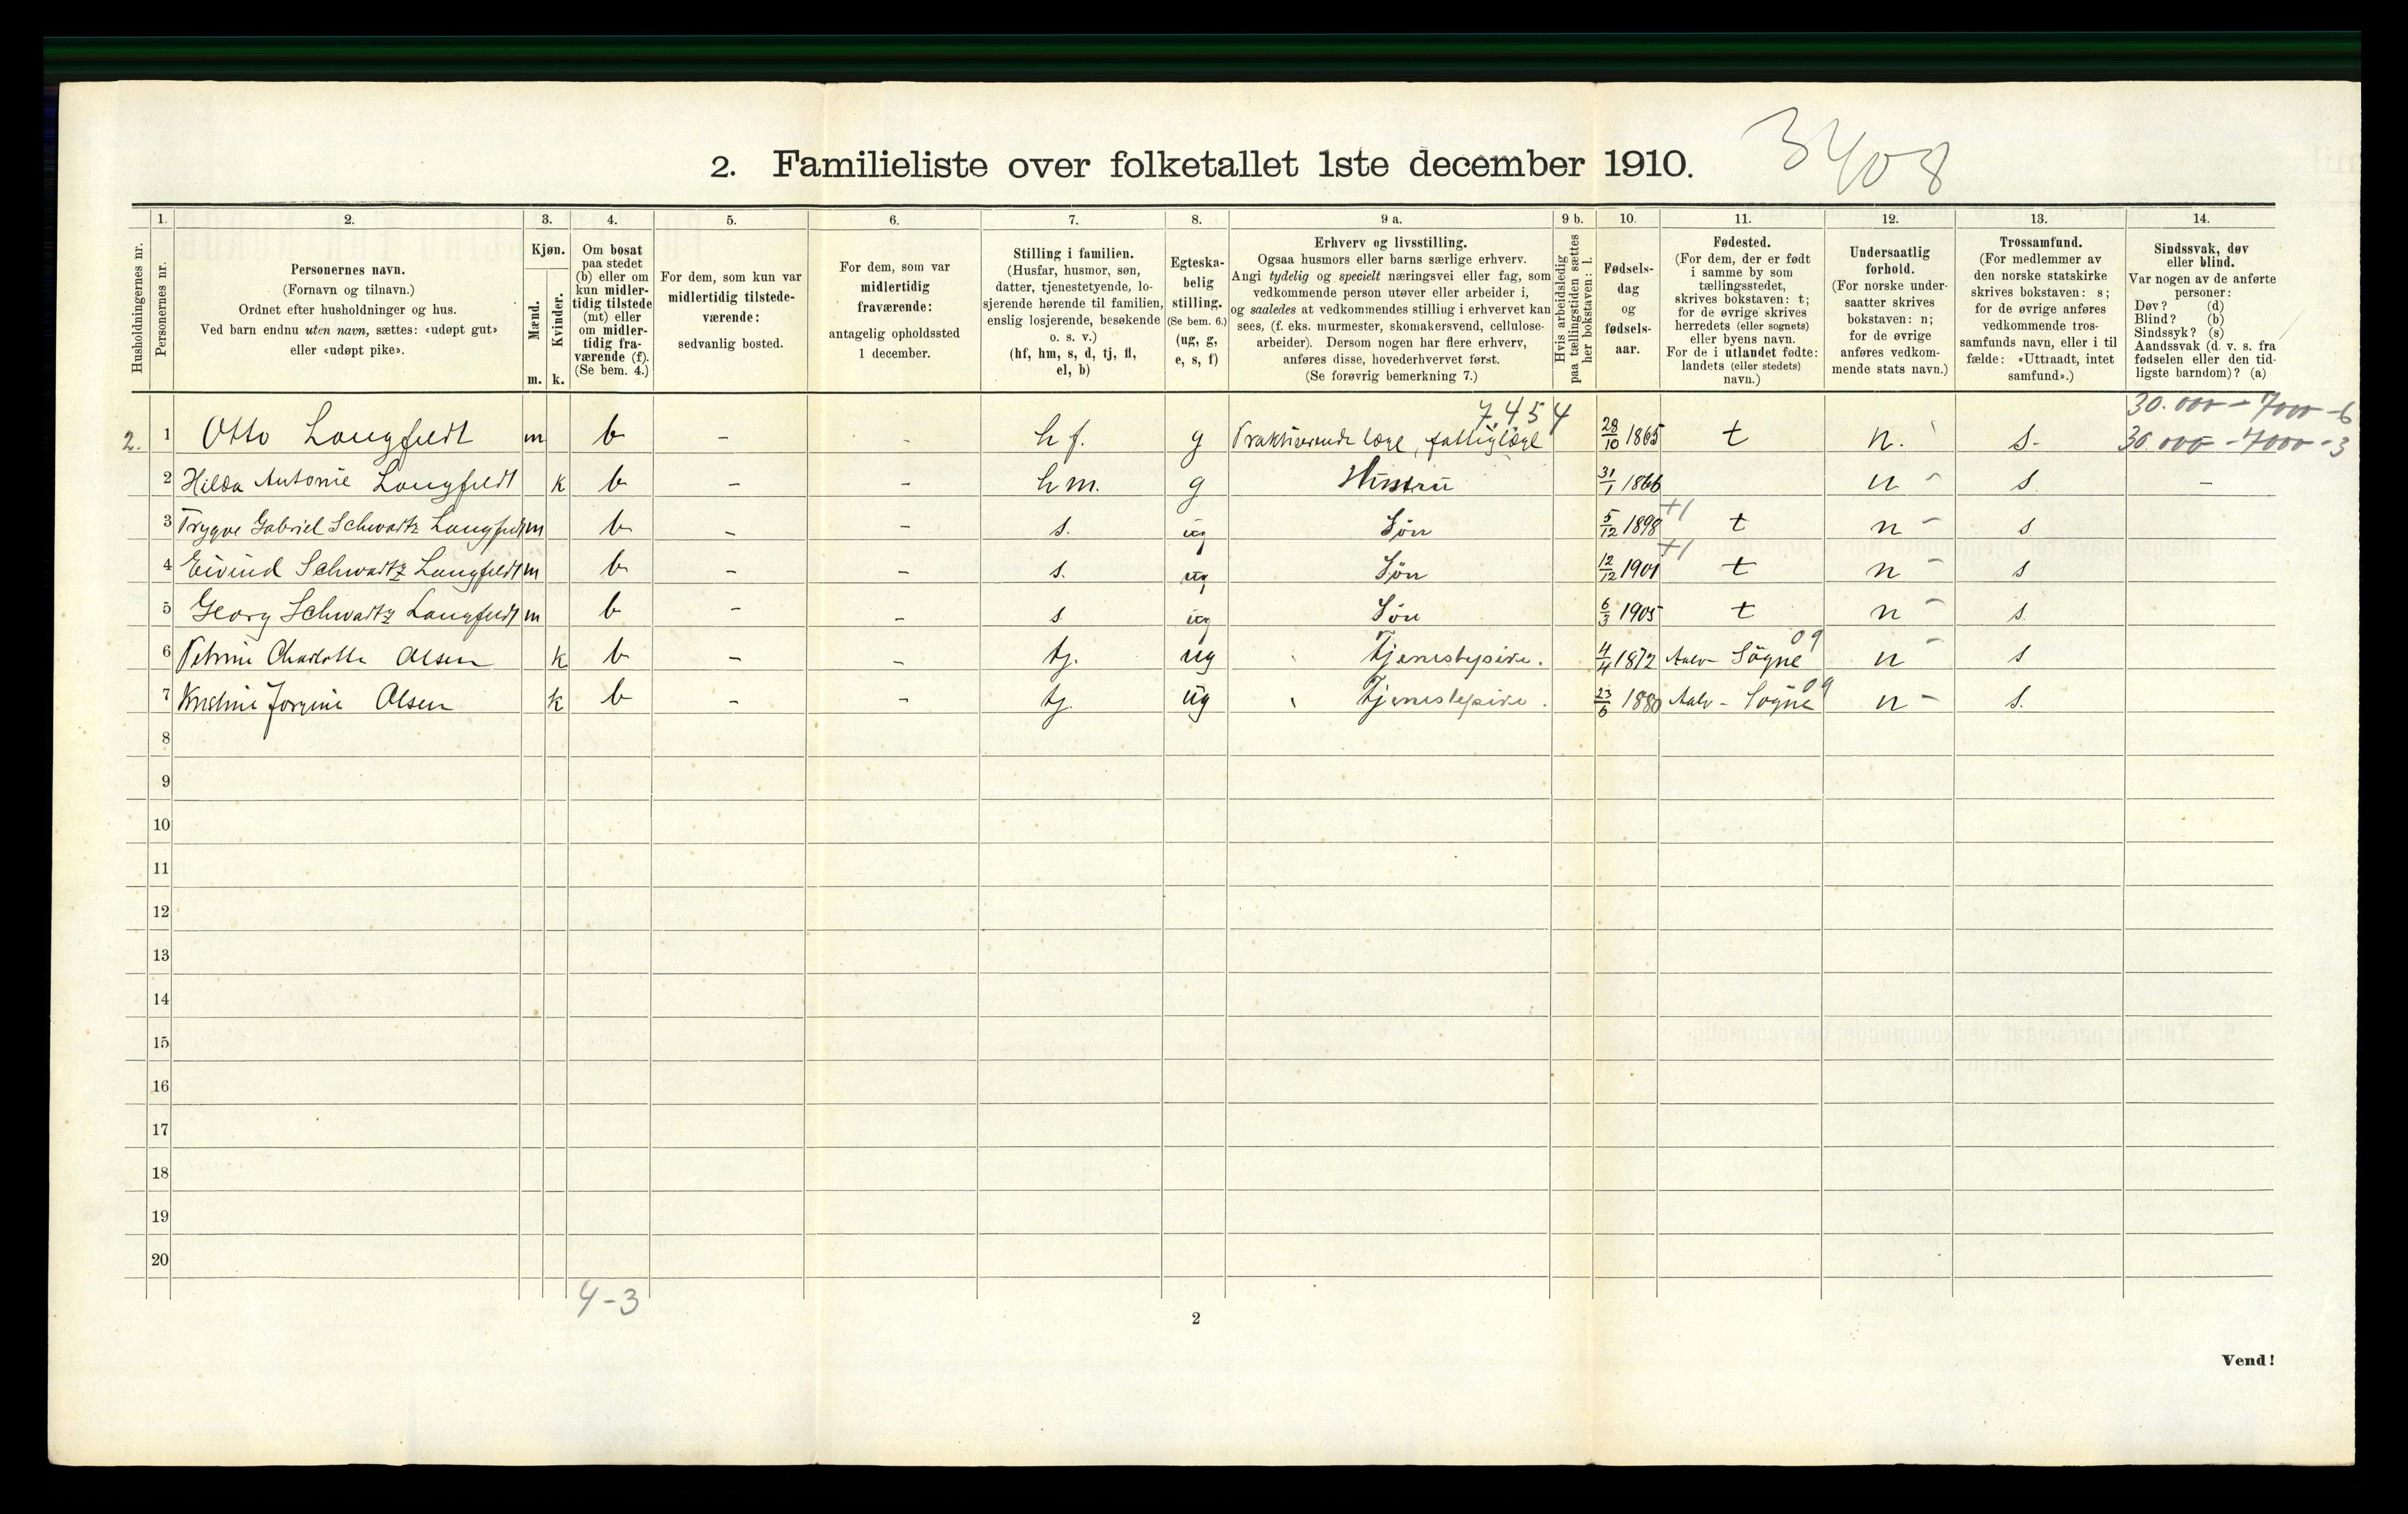 3408
2. Familieliste over folketallet 1ste december 1910.
Husholdningernes nr.
1. Personernes nr.
2. Personernes navn.
(Fornavn og tilnavn.)
Ordnet efter husholdninger og hus.
Ved barn endnu uten navn, sættes: «udøpt gut»
eller «udøpt pike».
3. Kjøn.
Mænd. m.
Kvinder. k.
4. Om bosat
paa stedet
(b) eller om
kun midler-
tidig tilstede
(mt) eller
om midler-
tidig fra-
værende (f).
(Se bem. 4.)
5. For dem, som kun var
midlertidig tilstede-
værende:
sedvanlig bosted.
6. For dem, som var
midlertidig
fraværende:
antagelig opholdssted
1 december.
7. Stilling i familien.
(Husfar, husmor, søn,
datter, tjenestetyende, lo-
sjerende hørende til familien,
enslig losjerende, besøkende
o. s. v.)
(hf, hm, s, d, tj, fl,
el, b)
8. Egteska-
belig
stilling.
(Se bem. 6.)
(ug, g,
e, s, f)
9 a. Erhverv og livsstilling.
Ogsaa husmors eller barns særlige erhverv.
Angi tydelig og specielt næringsvei eller fag, som
vedkommende person utøver eller arbeider i,
og saaledes at vedkommendes stilling i erhvervet kan
sees, (f. eks. murmester, skomakersvend, cellulose-
arbeider). Dersom nogen har flere erhverv,
anføres disse, hovederhvervet først.
(Se forøvrig bemerkning 7.)
9 b. Hvis arbeidsledig
paa tællingstiden sættes
her bokstaven: l.
10. Fødsels-
dag
og
fødsels-
aar.
11. Fødested.
(For dem, der er født
i samme by som
tællingsstedet,
skrives bokstaven: t;
for de øvrige skrives
herredets (eller sognets)
eller byens navn.
For de i utlandet fødte:
landets (eller stedets)
navn.)
12. Undersaatlig
forhold.
(For norske under-
saatter skrives
bokstaven: n;
for de øvrige
anføres vedkom-
mende stats navn.)
13. Trossamfund.
(For medlemmer av
den norske statskirke
skrives bokstaven: s;
for de øvrige anføres
vedkommende tros-
samfunds navn, eller i til
fælde: «Uttraadt, intet
samfund».)
14. Sindssvak, døv
eller blind.
Var nogen av de anførte
personer:
Døv? (d)
Blind? (b)
Sindssyk? (s)
Aandssvak (d. v. s. fra
fødselen eller den tid-
ligste barndom)? (a)
7.454 30.000 - 7000 - 6
2. 1 Otto Langfeldt m b - - hf. g Praktiserende læge, fattiglæge 28/10 1865 t n. s. 30.000 - 7000 - 3
2 Hilda Antonie Langfeldt k b - - hm. g Hustru 31/1 1866 n - s. -
3 Trygve Gabriel Schwartz Langfeldt m b - - s. ug Søn 5/12 1898 +1 t n - s
4 Eivind Schwartz Langfeldt m b - - s. ug Søn 12/12 1901 +1 t n - s
5 Georg Schwartz Langfeldt m b - - s ug Søn 6/3 1905 t n - s.
6 Petrine Charlotte Olsen k b - - tj. ug Tjenestepike. 4/4 1872 Aalv - Søgne 09 n - s
7 Kristine Jorgine Olsen k b - - tj. ug Tjenestepike. 23/6 1880 Aalv - Søgne 09 n - s.
8
9
10
11
12
13
14
15
16
17
18
19
20
4-3
2
Vend!